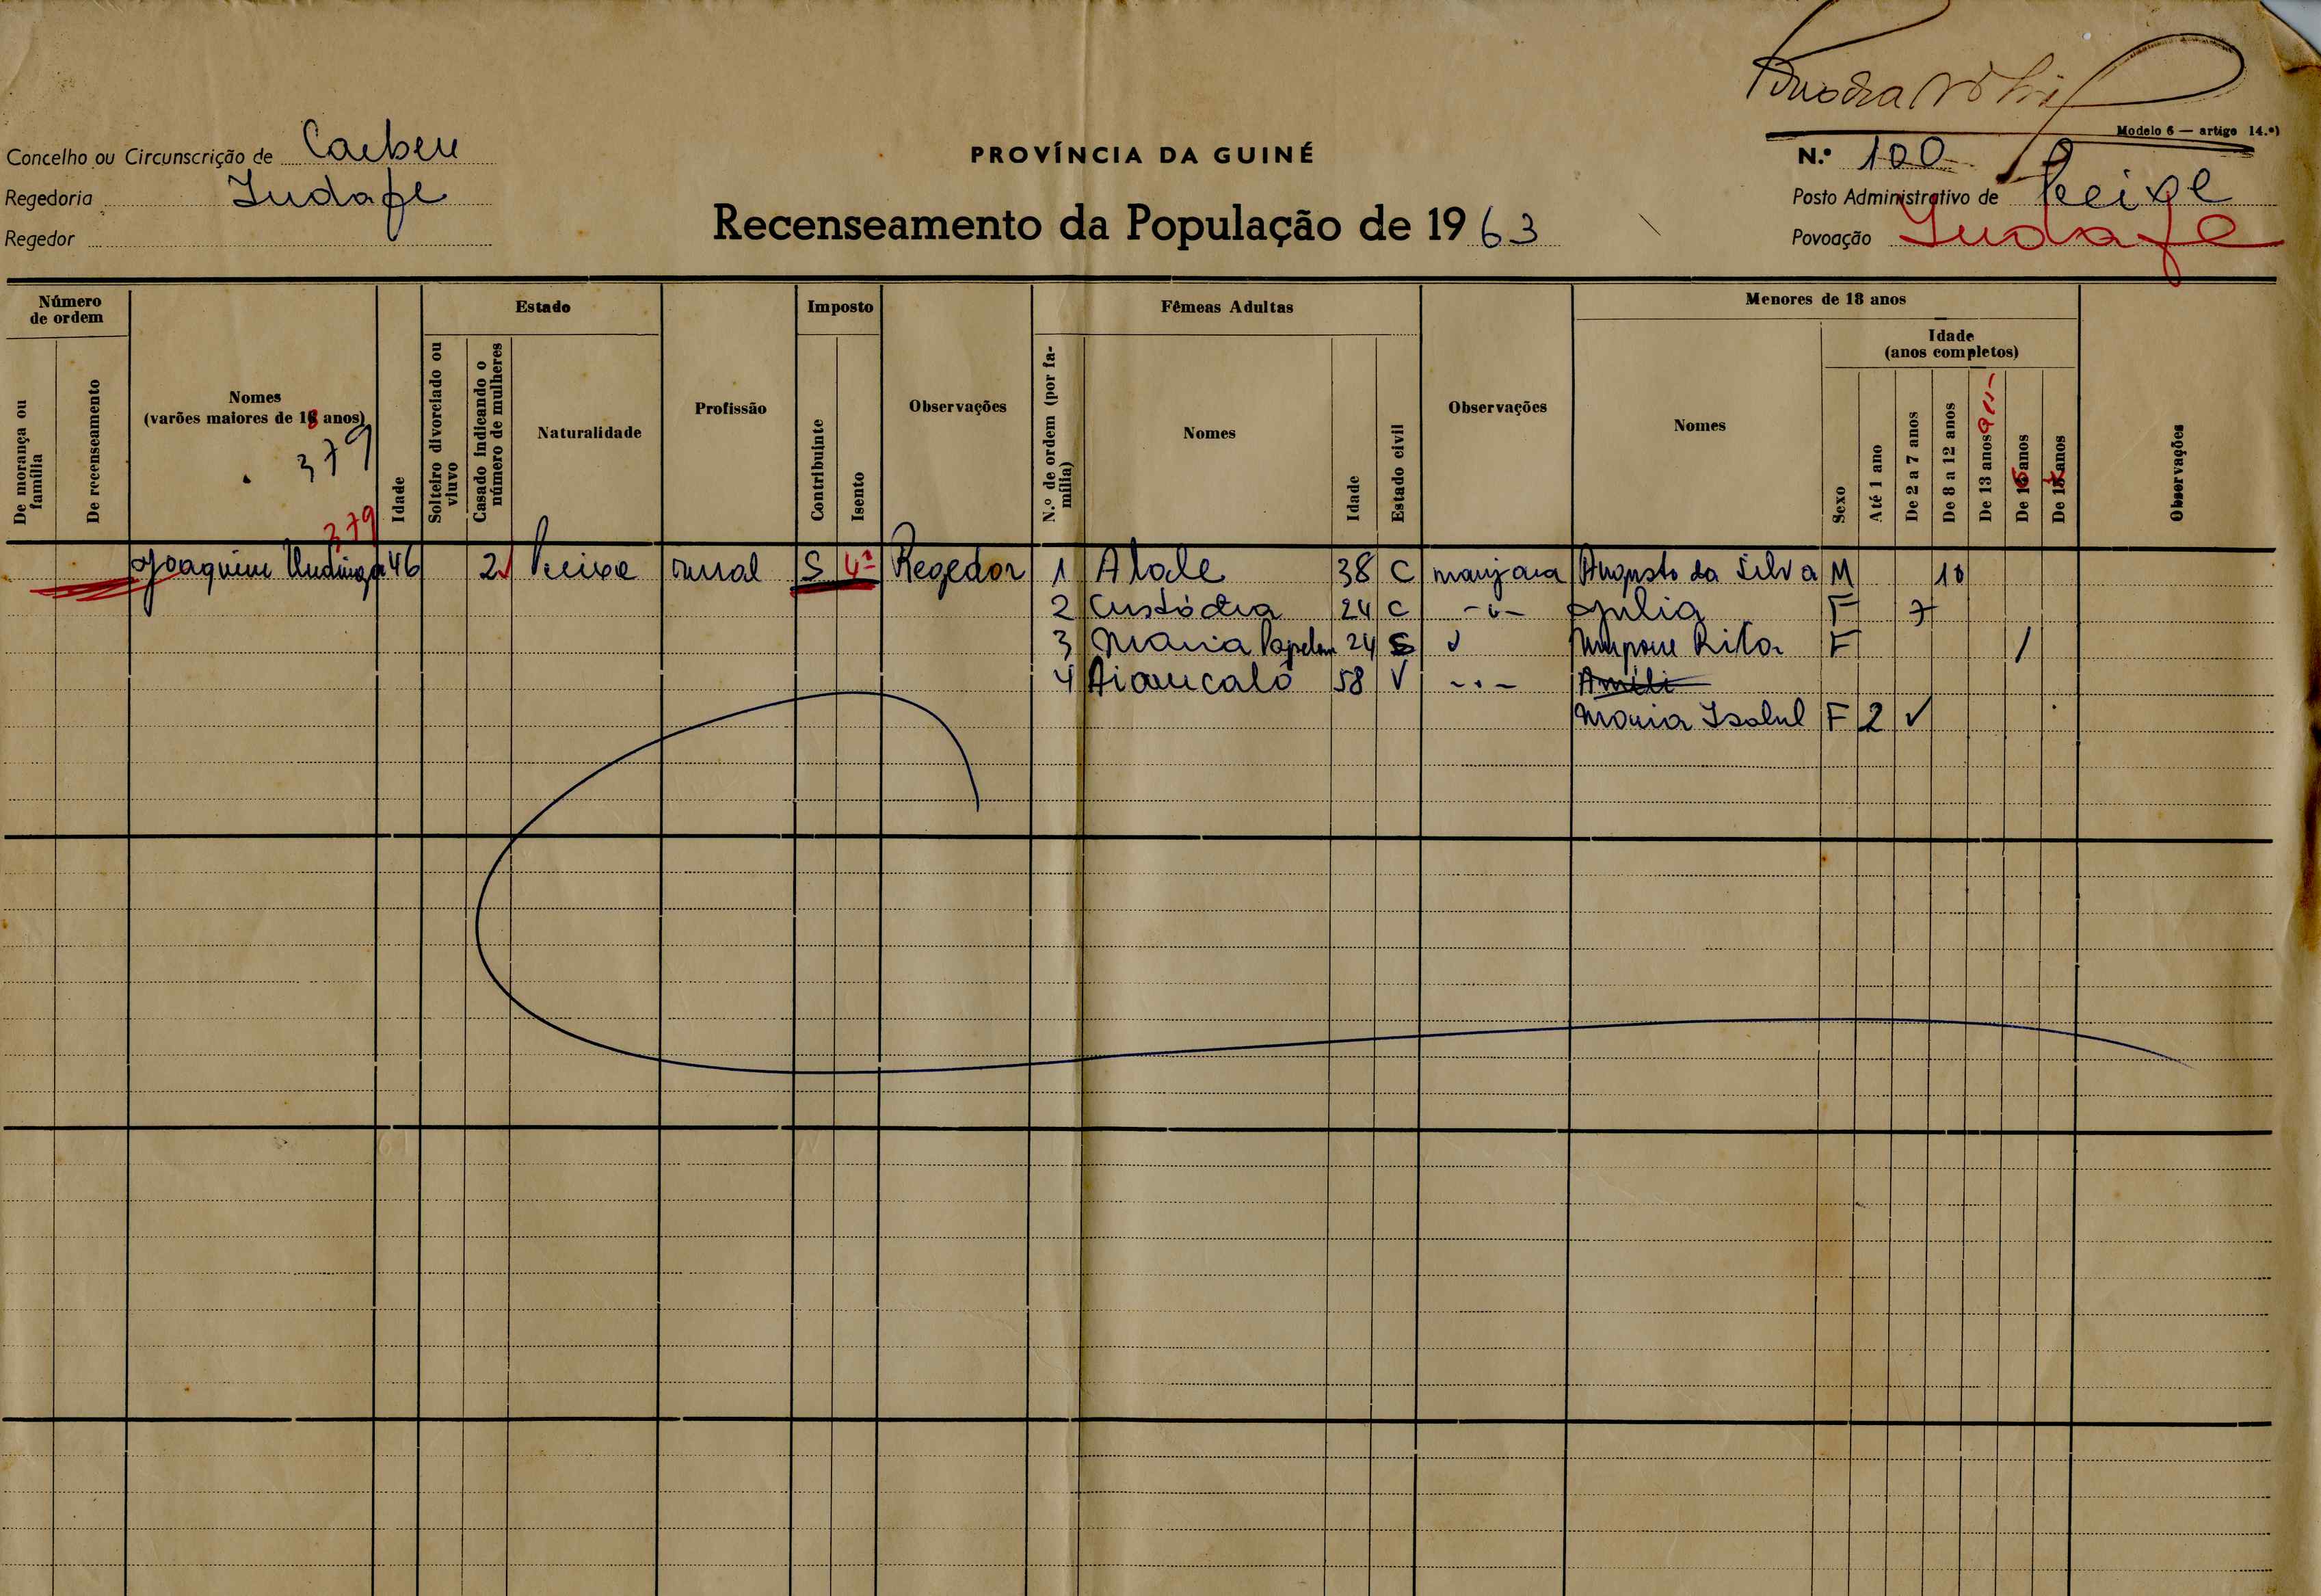 Modelo 6 — artigo 14.º)
Concelho ou Circunscrição de Cacheu
PROVÍNCIA DA GUINÉ
N.º 100
Regedoria Indafe
Posto Administrativo de Peixe
Regedor
Recenseamento da População de 1963
Povoação Indafe
Número de ordem
Estado
Imposto
Fêmeas Adultas
Menores de 18 anos
Idade (anos completos)
De morança ou família
De recenseamento
Nomes (varões maiores de 18 anos)
379
379
Idade
Solteiro divorciado ou viuvo
Casado indicando o número de mulheres
Naturalidade
Profissão
Contribuinte
Isento
Observações
N.º de ordem (por família)
Nomes
Idade
Estado civil
Observações
Nomes
Sexo
Até 1 ano
De 2 a 7 anos
De 8 a 12 anos
De 13 anos
De 16 anos
De 18 anos
Observações
Joaquim 46 2 Peixe rural S 4ª Regedor 1 Atale 38 C manjaca Augusto da Silva M 10
2 Custódia 24 C -"- Julia F 7
3 Maria 24 S Rita F /
4 58 V -"- Amili
Maria Isabel F 2 ✓